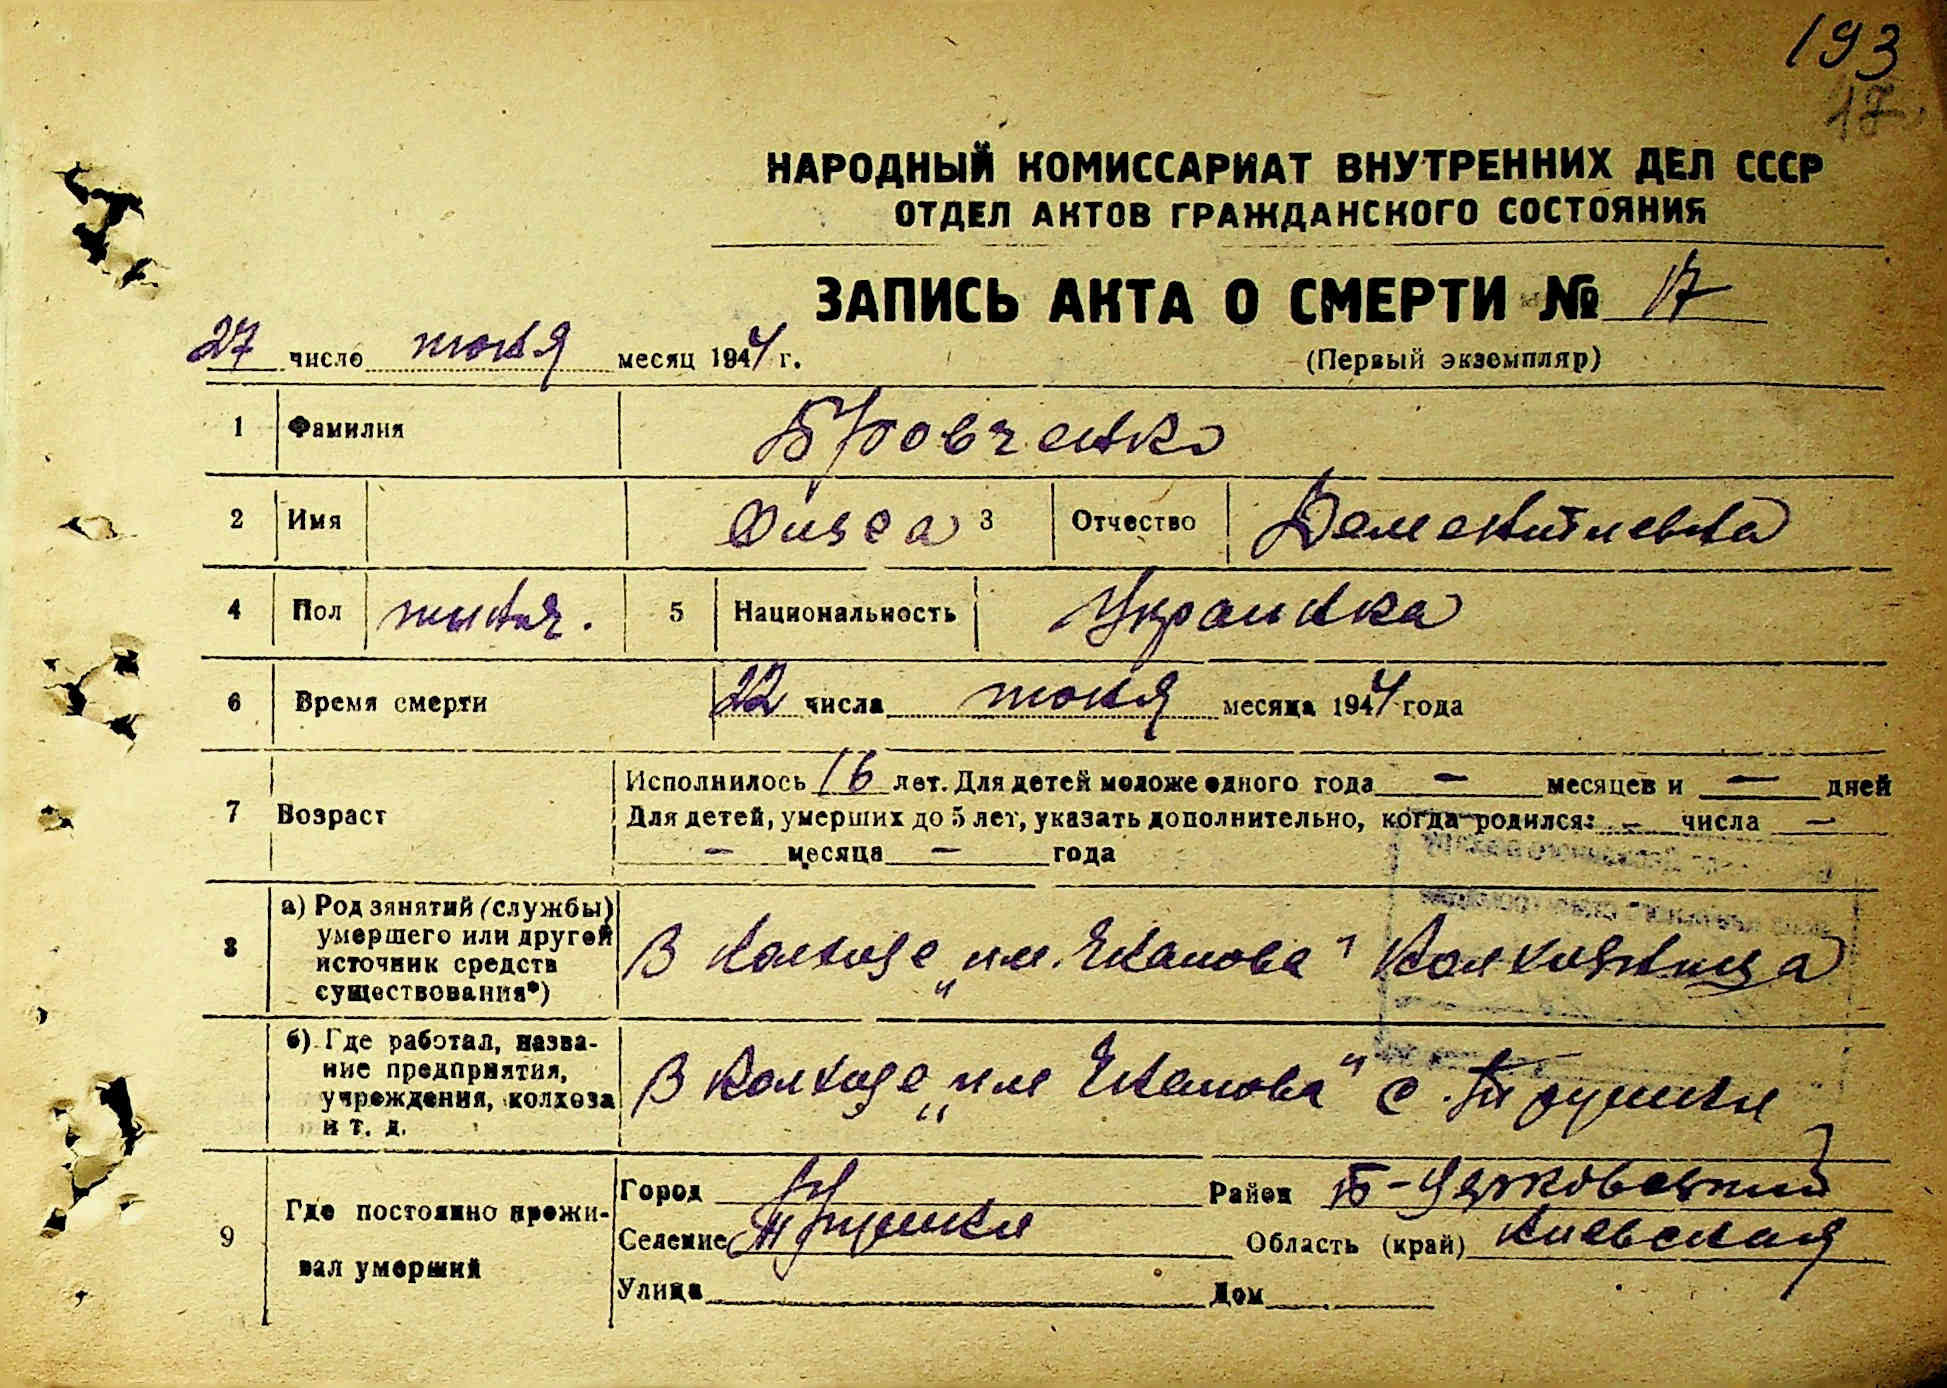 193
17.
НАРОДНЫЙ КОМИССАРИАТ ВНУТРЕННИХ ДЕЛ СССР
ОТДЕЛ АКТОВ ГРАЖДАНСКОГО СОСТОЯНИЯ
ЗАПИСЬ АКТА О СМЕРТИ № 17
27 число июня месяц 1944 г. (Первый экземпляр)
1 Фамилия Бровченко
2 Имя 3 Отчество Дементиевна
4 Пол 5 Национальность Украинка
6 Время смерти 22 числа июня месяца 1944 года
7 Возраст
Исполнилось 16 лет. Для детей моложе одного года — месяцев и — дней
Для детей, умерших до 5 лет, указать дополнительно, когда родился: — числа —
— месяца — года
8 а) Род занятий (службы)
умершего или другой
источник средств
существования*)
В колхозе „им. Колхозница
б) Где работал, назва-
ние предприятия,
учреждения, колхоза
и т. д.
В колхозе „им с. Трушки
9 Где постоянно прожи-
вал умерший
Город Район Б-Церковский
Селение Трушки Область (край) Киевская
Улица Дом